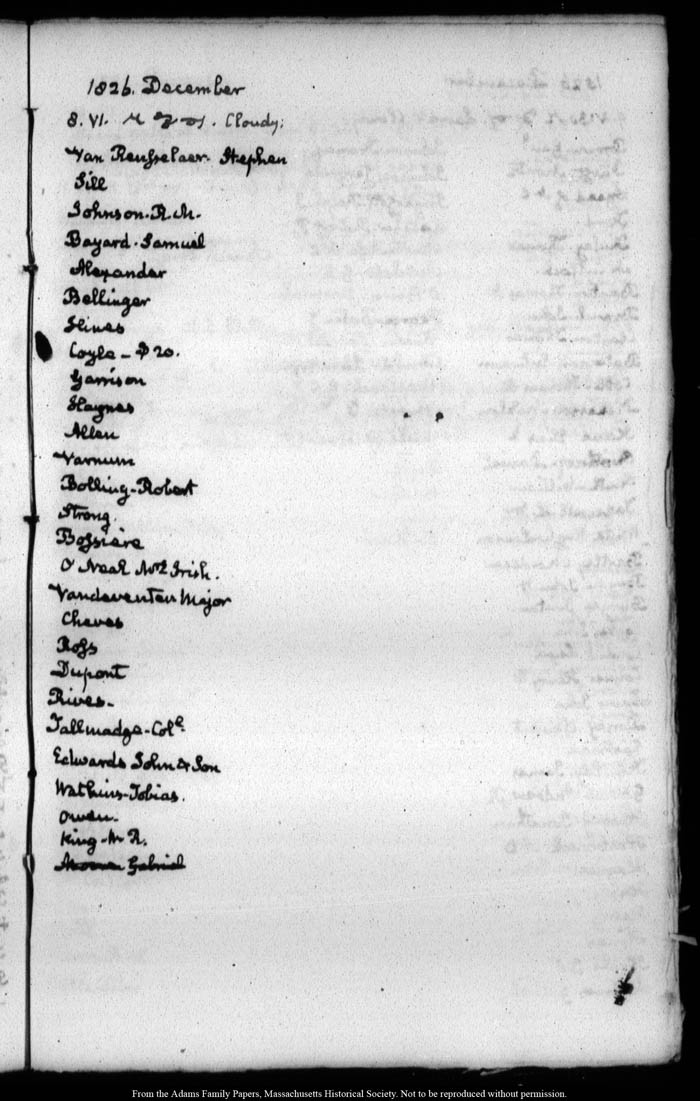 1826. December
8. VI. Cloudy;
Van Rensselaer. Stephen
Sill
Johnson. R. M.
Bayard. Samuel
Alexander
Bellinger
Hines
Coyle – $20.
Garrison
Haynes
Allen
Varnum
Bolling. Robert
Strong.
Bossière
O'Neal Mrs Irish.
Vandeventer Major
Cheves
Ross
Dupont
Rives.
Tallmadge. Col.
Edwards John & Son
Watkins. Tobias.
Owen.
King. W. R.
Moore Gabriel
From the Adams Family Papers, Massachusetts Historical Society. Not to be reproduced without permission.